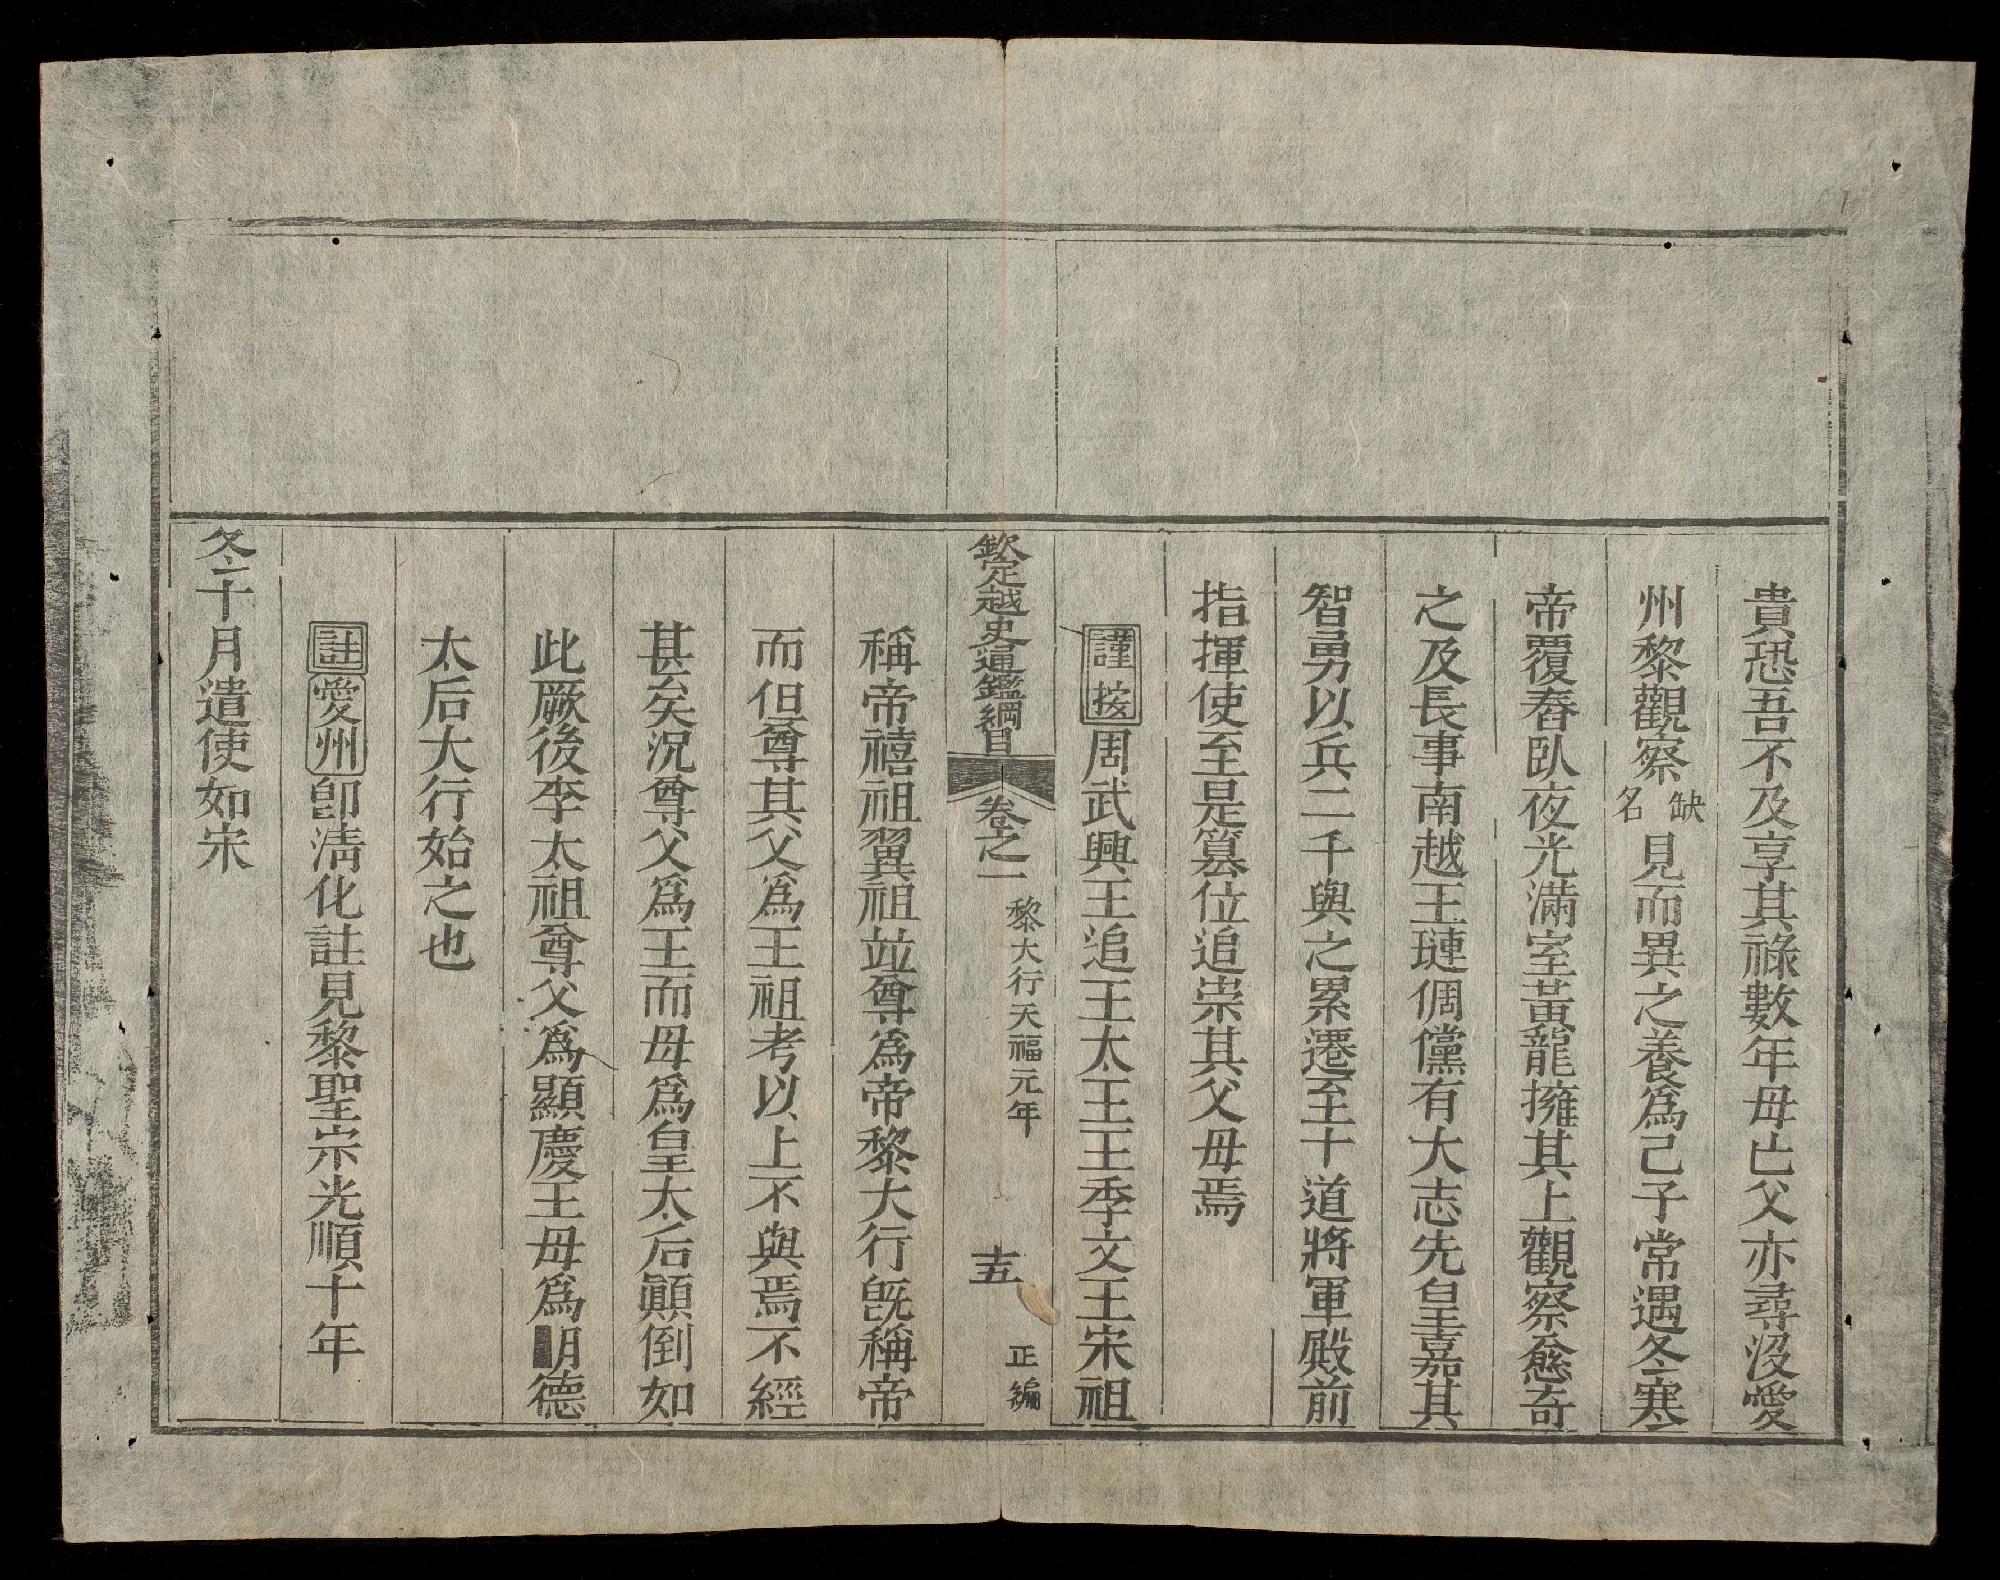 貴恐吾不及享其祿數年母亡父亦尋沒愛
州黎觀察缺名見而異之養爲己子常遇冬寒
帝覆舂臥夜光滿室黃龍擁其上觀察愈奇
之及長事南越王璉倜儻有大志先皇嘉其
智勇以兵二千與之累遷至十道將軍殿前
指揮使至是篡位追崇其父母焉
謹按周武興王追王太王王季文王宋祖
欽定越史通鑑綱目 卷之一 黎大行天福元年 十五 正編
稱帝禧祖翼祖並尊爲帝黎大行旣稱帝
而但尊其父爲王祖考以上不與焉不經
甚矣況尊父爲王而母爲皇太后顚倒如
此厥後李太祖尊父爲顯慶王母爲明德
太后大行始之也
註愛州卽淸化註見黎聖宗光順十年
冬十月遣使如宋